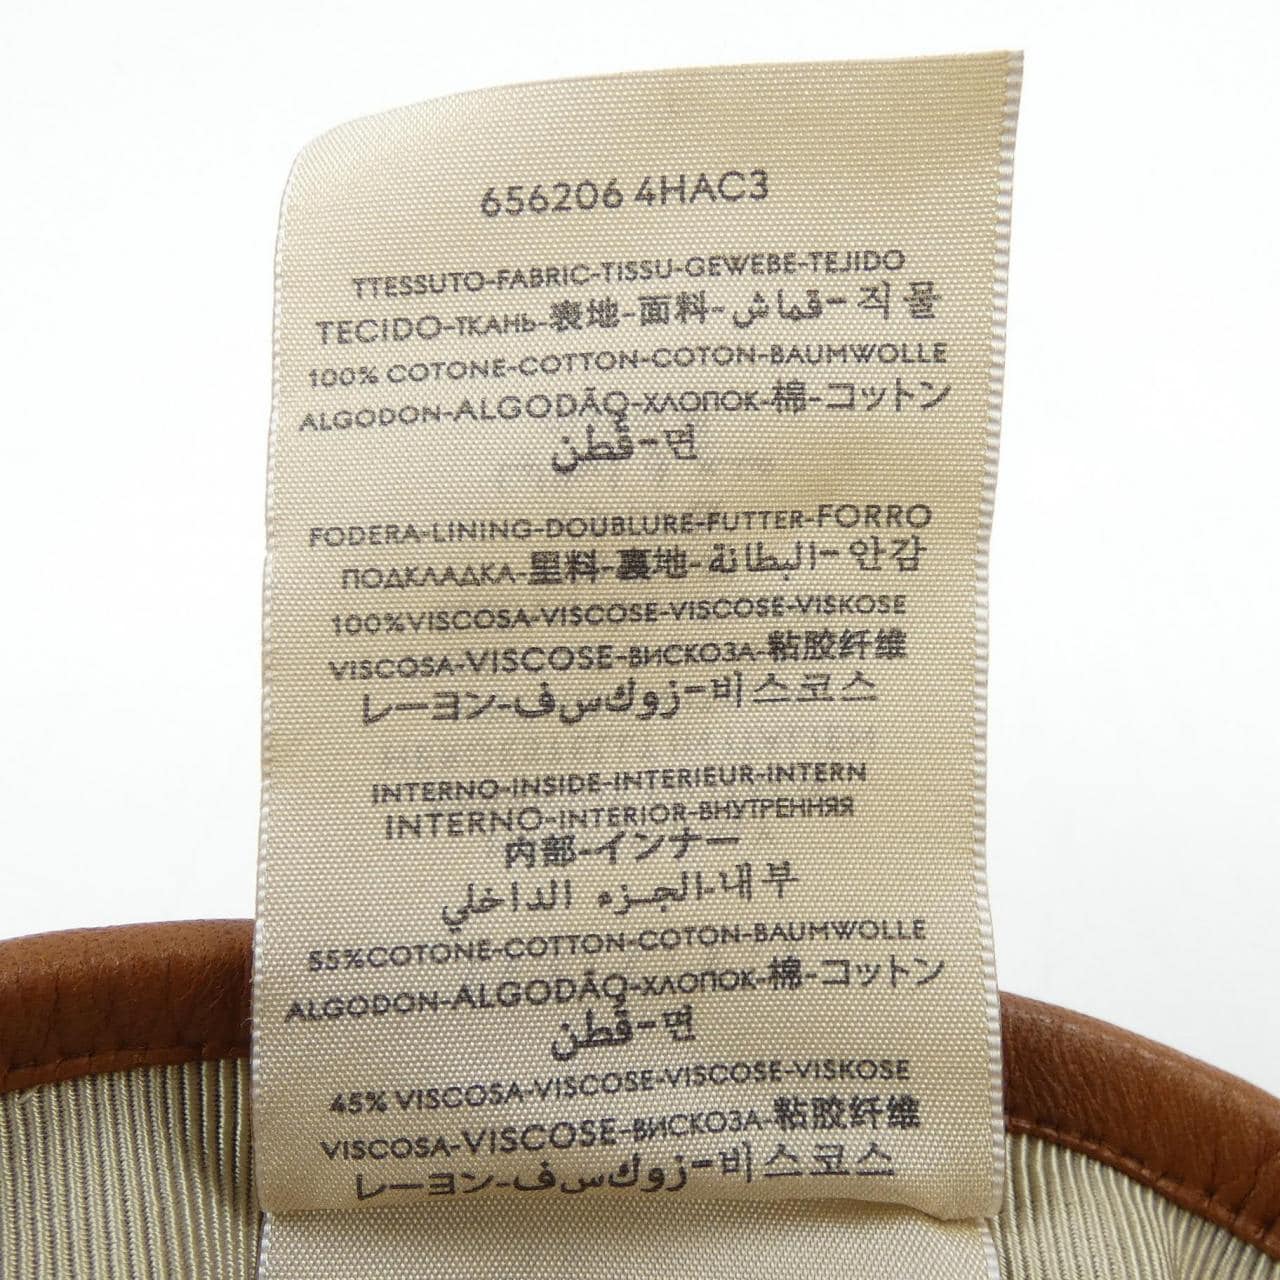 656206 4HAC3
TTESSUTO-FABRIC-TISSU-GEWEBE-TEJIDO
TECIDO-ТКАНЬ-表地-面料-قماش-직물
100% COTONE-COTTON-COTON-BAUMWOLLE
ALGODON-ALGODÃO-ХЛОПОК-棉-コットン
قطن-면
FODERA-LINING-DOUBLURE-FUTTER-FORRO
ПОДКЛАДКА-里料-裏地-البطانة-안감
100%VISCOSA-VISCOSE-VISCOSE-VISKOSE
VISCOSA-VISCOSE-ВИСКОЗА-粘胶纤维
レーヨン-زوكسف-비스코스
INTERNO-INSIDE-INTERIEUR-INTERN
INTERNO-INTERIOR-ВНУТРЕННЯЯ
内部-インナー
الجزء الداخلي-내부
55%COTONE-COTTON-COTON-BAUMWOLLE
ALGODON-ALGODÃO-ХЛОПОК-棉-コットン
قطن-면
45% VISCOSA-VISCOSE-VISCOSE-VISKOSE
VISCOSA-VISCOSE-ВИСКОЗА-粘胶纤维
レーヨン-زوكسف-비스코스